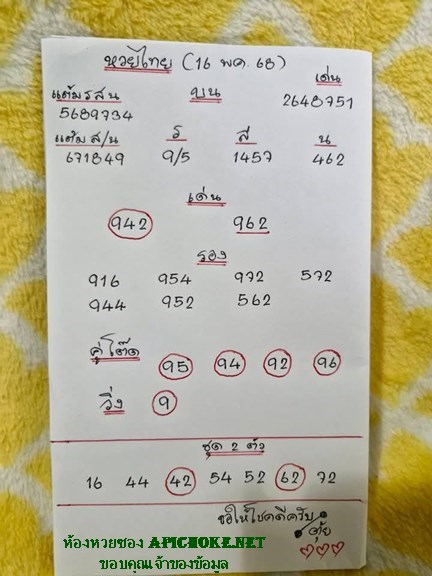 หวยไทย (16 พค. 68)
แต้มรสน บน เด่น
5689734 2648751
แต้มส/น ร สิ น
671849 9/5 1457 462
เด่น
942 962
รอง
916 954 972 572
944 952 562
คู่โต๊ด 95 94 92 96
วิ่ง 9
ชุด 2 ตัว
16 44 42 54 52 62 72
ขอให้โชคดีครับ
ตุ้ย
ห้องหวยซอง APICHOKE.NET
ขอบคุณเจ้าของข้อมูล